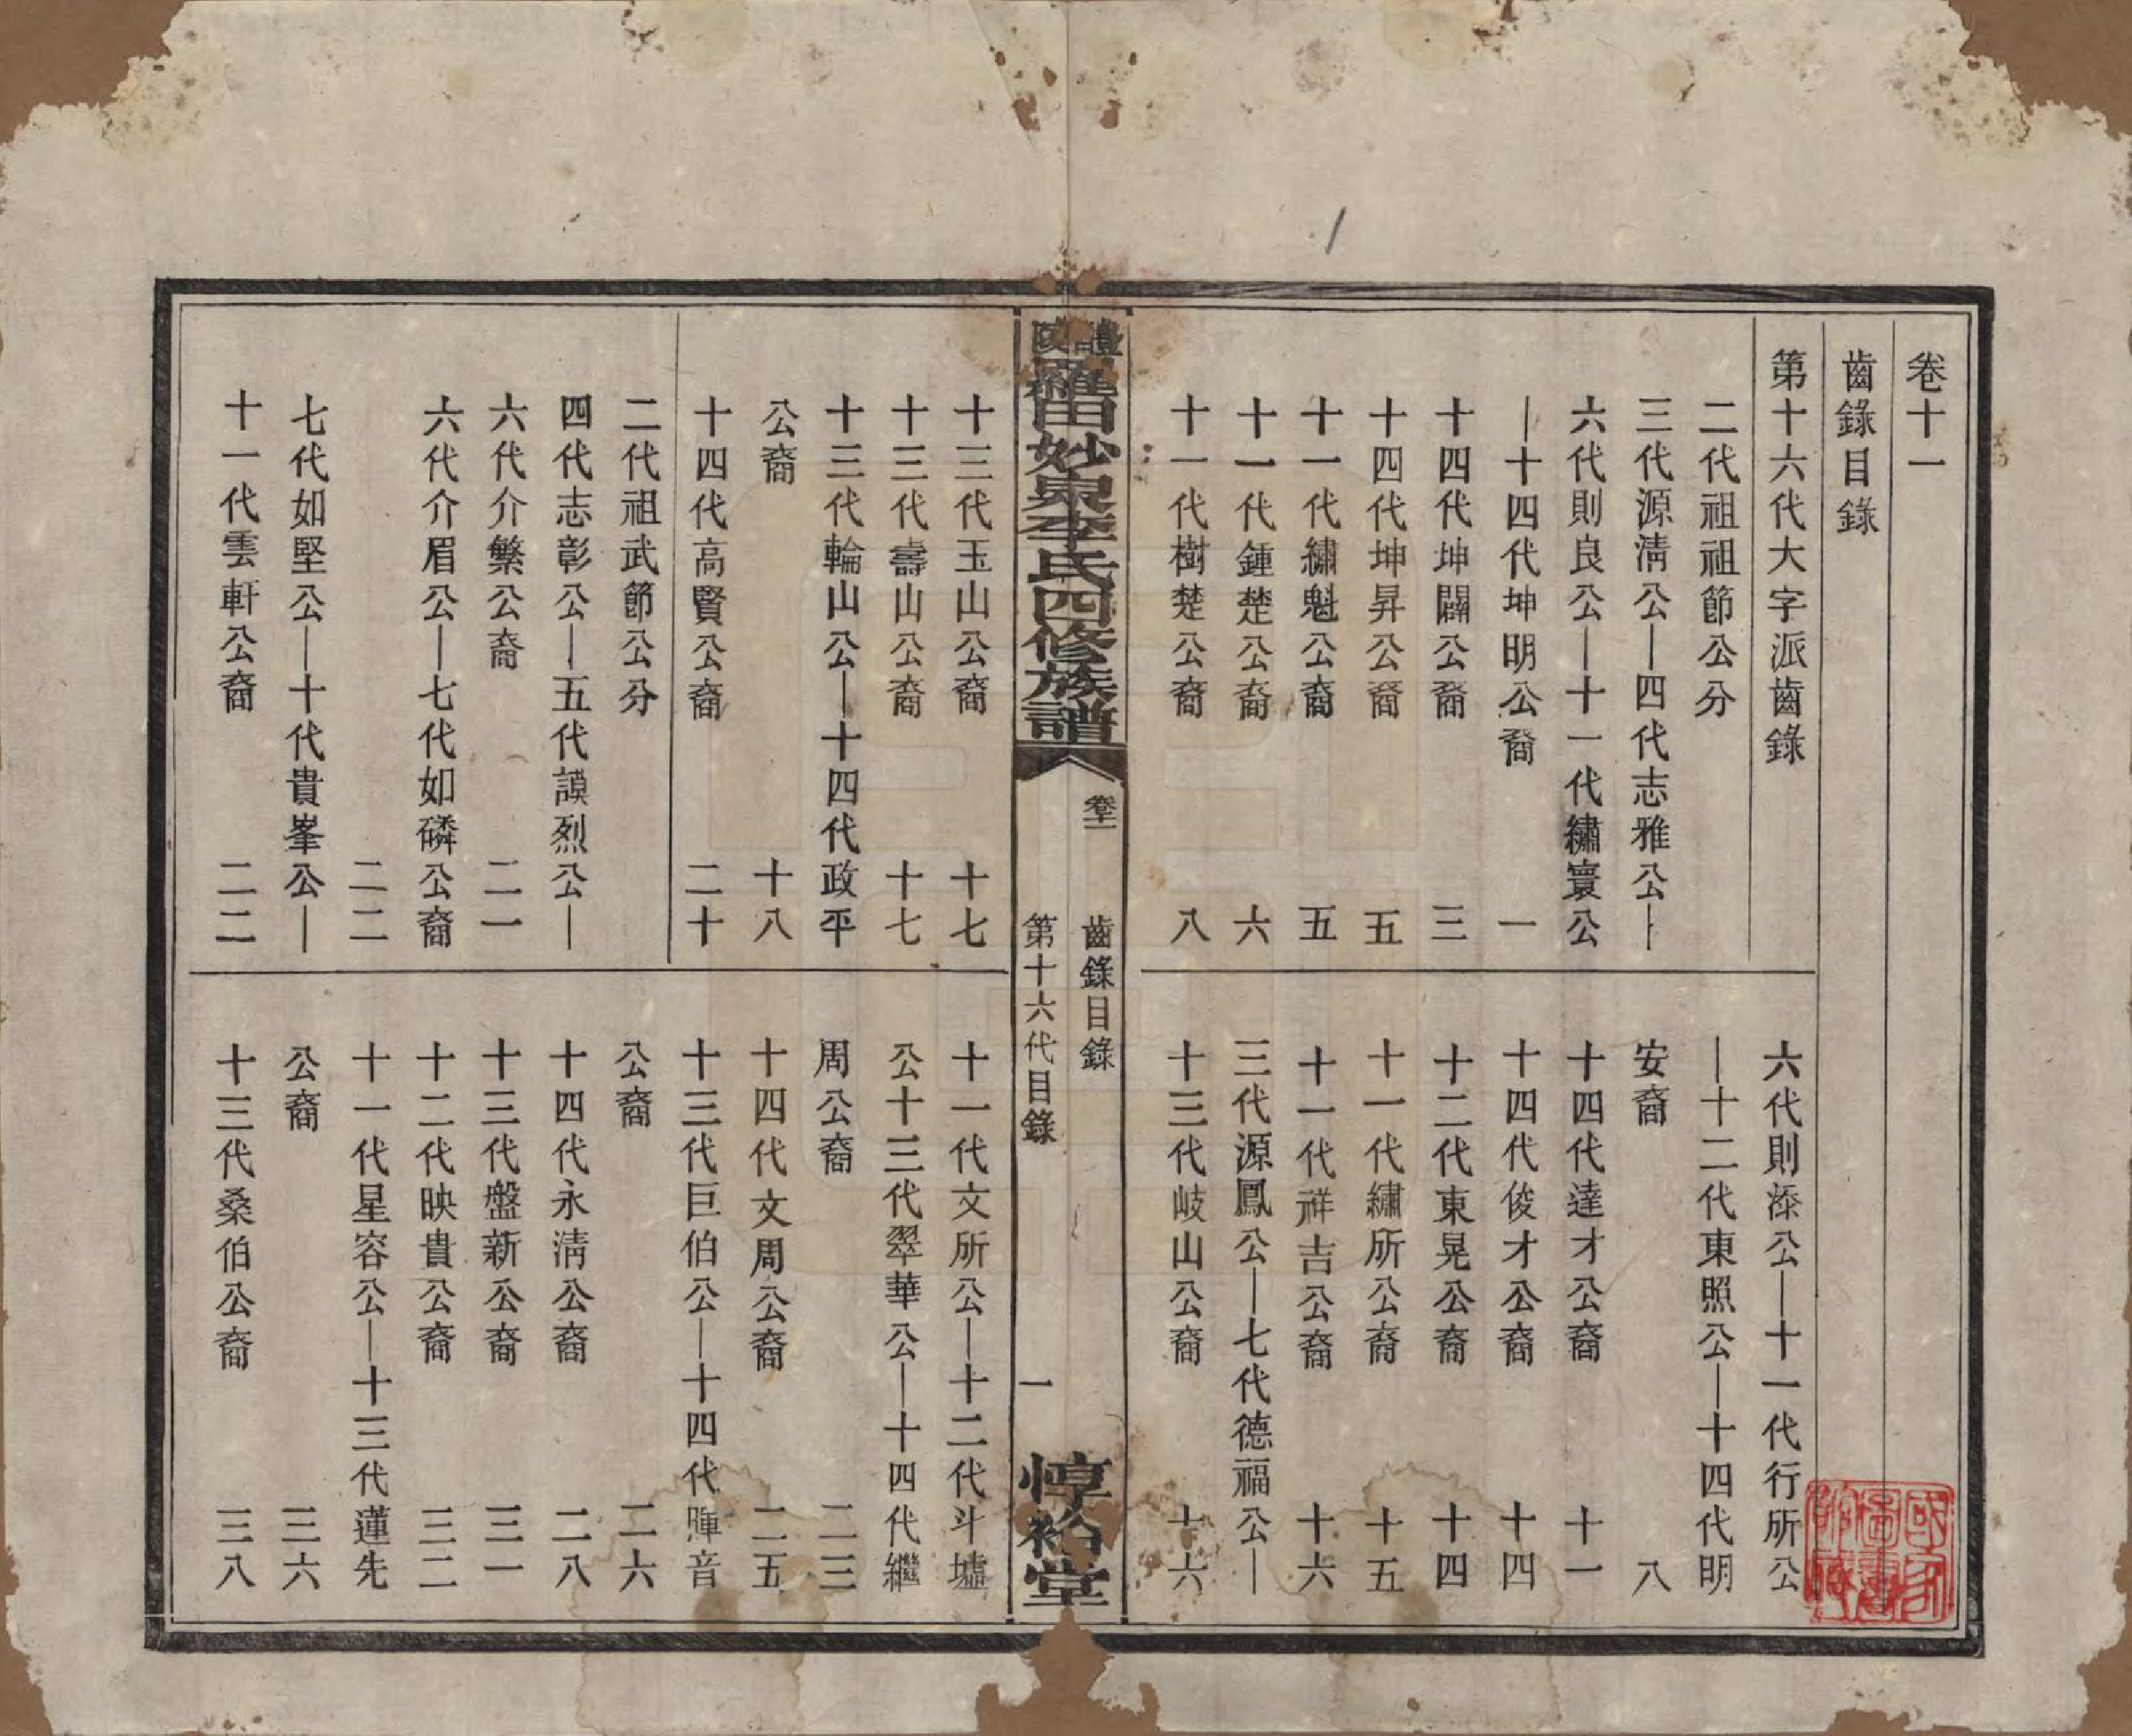 卷十一
齒錄目錄
第十六代大字派齒錄
二代祖祖節公分
三代源淸公—四代志雅公—
六代則良公—十一代繡寰公
—十四代坤明公裔 一
十四代坤闢公裔 三
十四代坤昇公裔 五
十一代繡魁公裔 五
十一代鍾楚公裔 六
十一代樹楚公裔 八
六代則漆公—十一代行所公
—十二代東照公—十四代明
安裔 八
十四代達才公裔 十一
十四代俊才公裔 十四
十二代東晃公裔 十四
十一代繡所公裔 十五
十一代祥吉公裔 十六
三代源鳳公—七代德福公—
十三代岐山公裔 十六
醴陵羅田妙泉李氏四修族譜
卷十一
齒錄目錄
第十六代目錄
一
惇裕堂
十三代玉山公裔 十七
十三代壽山公裔 十七
十三代輪山公—十四代政平
公裔 十八
十四代高賢公裔 二十
二代祖武節公分
四代志彰公—五代謨烈公—
六代介繁公裔 二一
六代介眉公—七代如磷公裔
二二
七代如堅公—十代貴峯公—
十一代雲軒公裔 二二
十一代文所公—十二代斗墟
公十三代翠華公—十四代繼
周公裔 二三
十四代文周公裔 二五
十三代巨伯公—十四代暉音
公裔 二六
十四代永淸公裔 二八
十三代盤新公裔 三一
十二代映貴公裔 三二
十一代星容公—十三代蓮先
公裔 三六
十三代桑伯公裔 三八